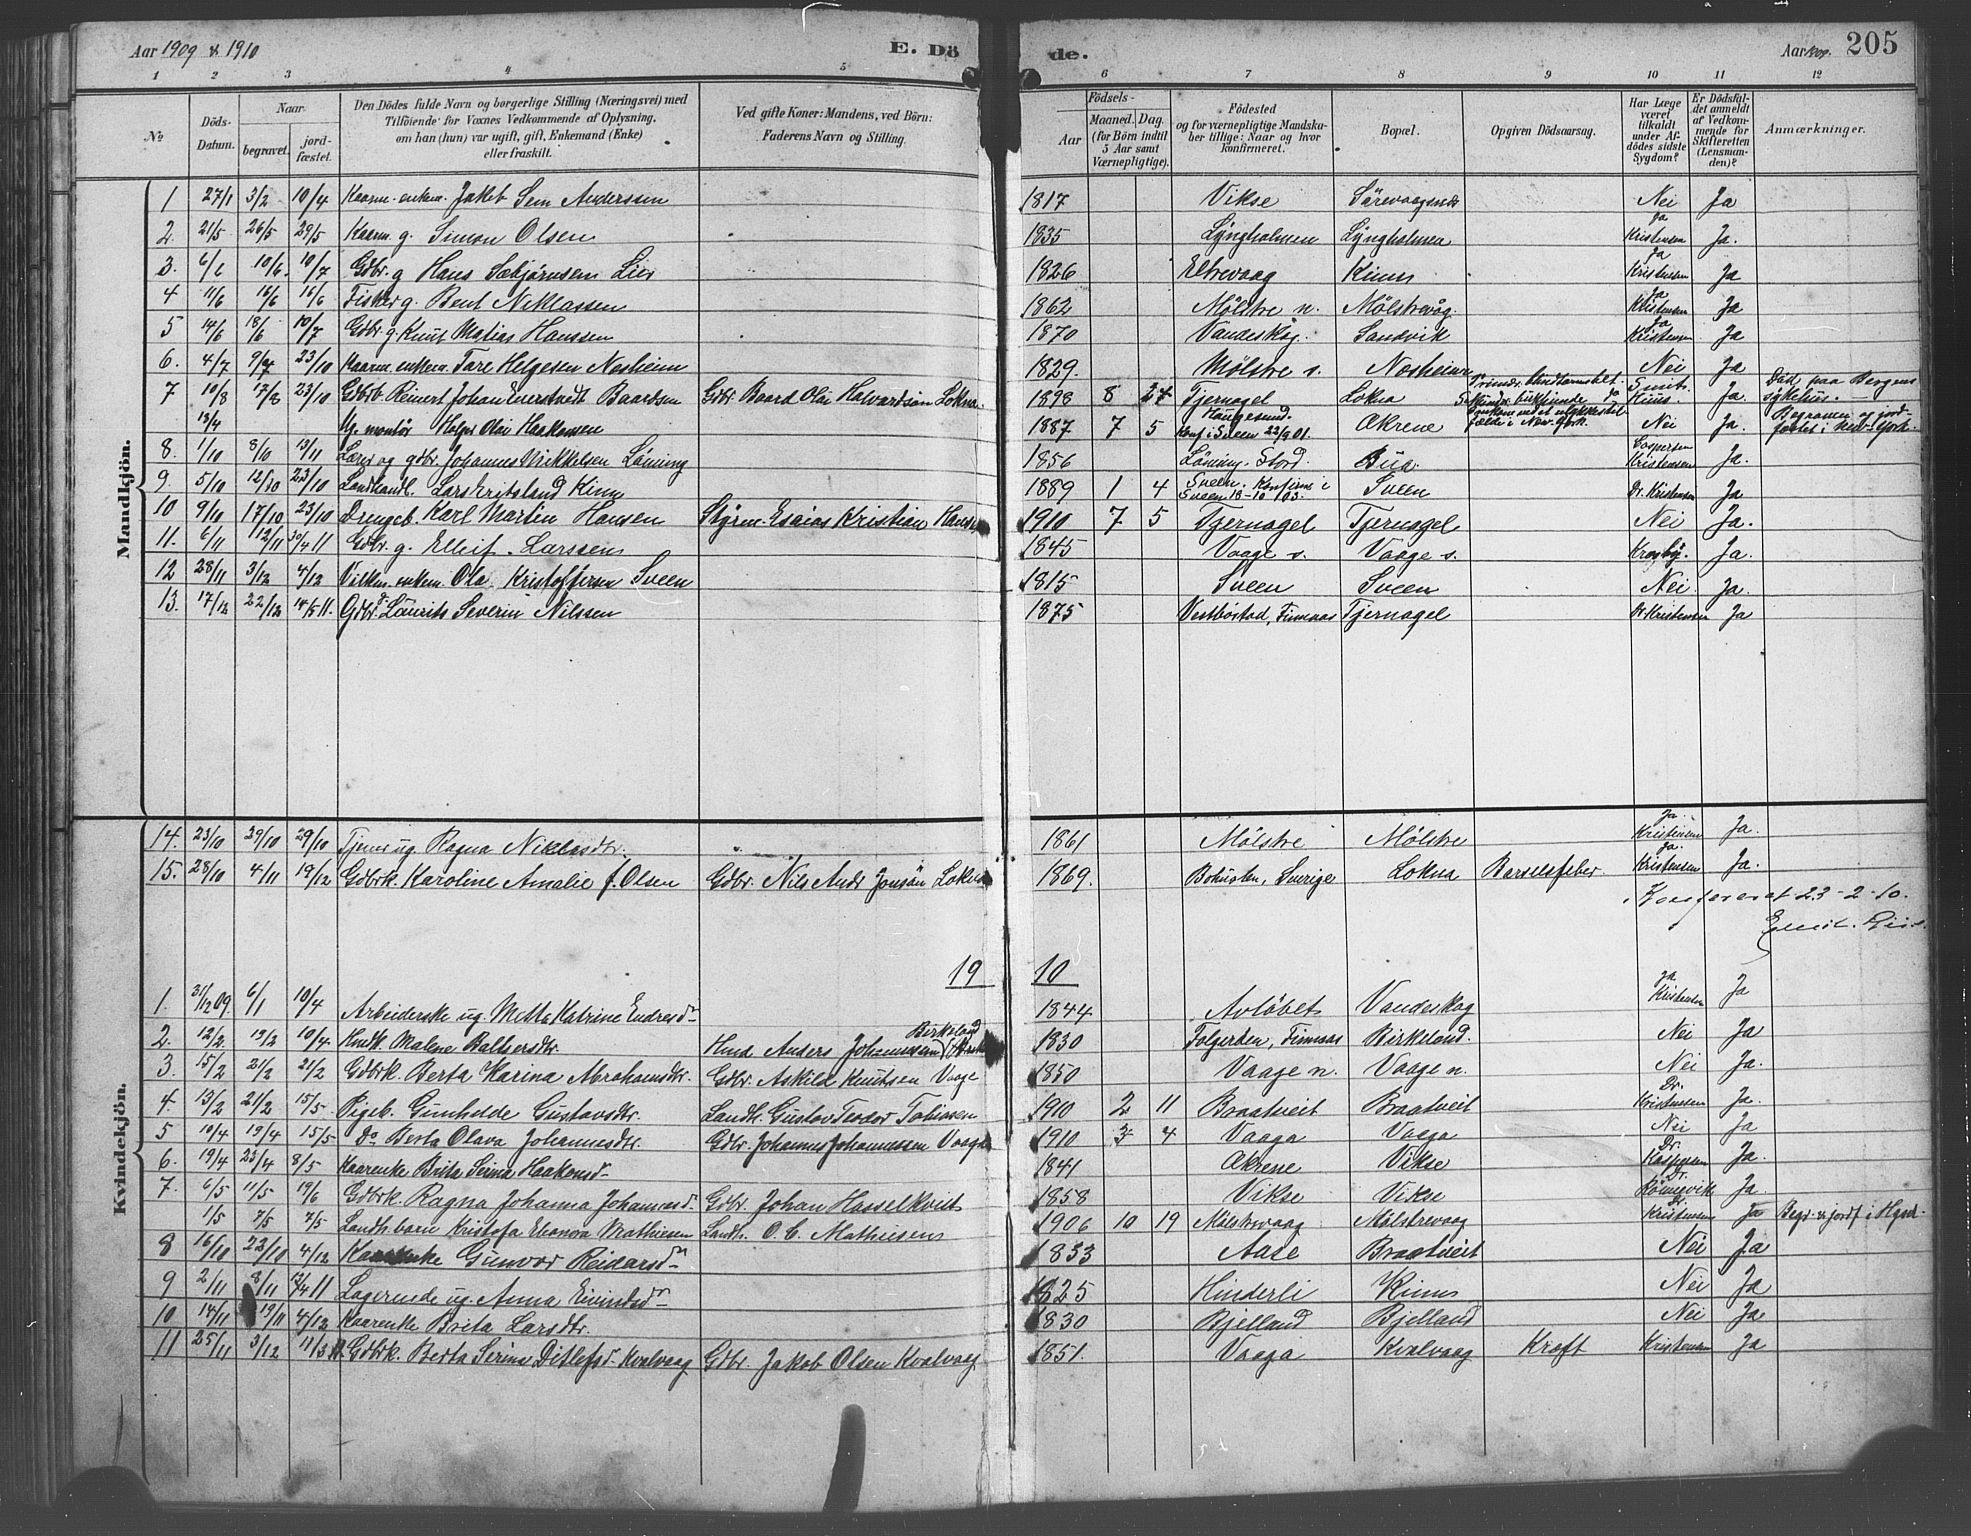 Aar 1909 & 1910 E. Dö de. Aar 205
1 2 3 4 5 6 7 8 9 10 11 12
No
Döds-Datum.
Naar
begravet.
jord-fæstet.
Den Dödes fulde Navn og borgerlige Stilling (Næringsvei) med
Tilföiende for Voxnes Vedkommende af Oplysning,
om han (hun) var ugift, gift, Enkemand (Enke)
eller fraskilt.
Ved gifte Koner: Mandens, ved Börn:
Faderens Navn og Stilling.
Födsels-
Aar
Maaned. Dag.
(for Börn indtil
5 Aar samt
Værnepligtige).
Födested
og for værnepligtige Mandska-
ber tillige: Naar og hvor
konfirmeret.
Bopæl.
Opgiven Dödsaarsag.
Har Læge
været
tilkaldt
under Af-
dödes sidste
Sygdom?
Er Dödsfal-
det anmeldt
af Vedkom-
mende for
Skifteretten
(Lensman-
den)?
Anmærkninger.
Mandkjön.
1 27/1 3/2 10/4 Kaarm. enkem. Jakob Sem Anderssen 1817 Vikse Nei Ja
2. 21/5 26/5 29/5 Kaarm g. Simon Olsen 1835 Lyngholmen Lyngholmen Ja Kristensen Ja.
3. 6/6 10/6. 10/7 Gdbr. g Hans Sæbjörnsen Lier 1826 Eltrevaag Kinn Ja Kristensen Ja
4 11/6 16/6 16/6 Fisker g. Bent Niklassen 1862 Mölstre n. Mölstrevåg. Ja Kristensen Ja
5 14/6 18/6 10/7 Gdbr. g. Knut Matias Hanssen 1870 Vandeskog. Sandvik Ja Kristensen Ja
6. 4/7 9/7 23/10 Kaarm. enkem. Tare Helgesen Nesheim 1829. Mölstre s. Nesheim Nei Ja
7 10/8 17/8 23/10 Gdbrb Reinert Johan Baardsen Gdbr. Baard Olai Halvardsön Lokna. 1898 8 27 Tjernagel Lokna Ja. Död paa Bergens sykehus.
13/4 Ug. montör Holger Olai Haakonsen 1887 7 5 Haugesund. Konf. i Sveen 22/9 01. Økrene Nei Ja. Begraven og jord-fæstet i New-York.
8. 1/10 8/10 13/11 Lærer og gdbr. Johannes Mikkelsen Löning 1856 Löning, Stord. Bua Kristensen Ja.
9. 5/10 12/10 23/10 Landhandl. Lars Kinn 1889 1 4 Sveen. Konfirm i Sveen 18-10/03. Sveen Dr. Kristensen Ja
10 9/10 17/10 23/10 Drengeb. Karl Martin Hansen Styrm. Esaias Kristian Hansen 1910 7 5 Tjernagel Tjernagel Nei Ja.
11. 6/11 12/11 30/4 11 Gdbr. g. Ellert Larssen 1845 Vaage s. Vaage s. Ja.
12 28/11 3/12 4/12 Vilkm. enkem. Ola Kristoffersen Sveen 1815 Sveen Sveen Nei. Ja.
13. 17/12 22/12 14/5 11. Gdbr. Laurits Severin Nilsen 1875 Vestböstad, Finnaas Tjernagel Dr. Kristensen Ja
Kvindekjön.
14. 23/10 29/10 29/10 Tjener ug. Ragna Niklasdtr. 1861 Mölstre Mölstre Ja. Kristensen Ja.
15. 28/10 4/11 19/12 Gdbrk. Karoline Amalie f. Olsen Gdbr. Nils Andr Jonsön Lokna 1869. Bohuslen, Sverige Lokna Barselsfeber Ja. Kristensen Ja.
Konfereret 23-2-10.
Emil. Riis.
19 10
1. 31/12 09. 6/1 10/4 Arbeiderske ug. Mette Katrine Endresdr 1844 Avlöbet Vandeskog Ja Kristensen Ja
2. 12/2. 19/2 10/4. Hmdk. Malene Baltsersdtr. Hmd Anders Johannessen Birkeland 1830 Folgeröen, Finnaas Birkeland. Nei Ja
3. 15/2 21/2 21/2 Gdbrk. Berta Karina Abrahamsdtr. Gdbr. Askild Knutsen Vaage 1850 Vaage n. Vaage n. Nei Ja.
4. 13/2 21/2 15/5 Pigeb. Gunhilde Gustavsdtr. Landh. Gustav Teodor Tobiasen 1910 2 11 Braatveit Braatveit Dr. Kristensen Ja.
5 10/4 19/4 15/5 Do Berta Olava Johannesdtr. Gdbr. Johannes Johannessen Vaaga 1910 3 4 Vaaga Vaaga Nei Ja
6. 19/4 23/4 8/5 Kaarenke Brita Serina Haakonsd. 1841 Økrene Vikse Dr. Ja.
7. 6/5 11/5 19/6 Gdbrk. Ragna Johanna Johannesd. Gdbr. Johan Hasselkvist 1858 Vikse Vikse Dr. Ja.
1/5 7/5 7/5 Landh. barn Kristofa Eleonora Mathiesen Landh. O. C. Mathiesens 1906 10 19 Mölstrevaag Mölstrevaag Dr. Kristensen Ja Begr & jordf i Hgsd.
8 16/10 23/10 4/12 Kaarenke Gunvor Reidarsdr 1833 Aase Braatveit Nei Ja
9 2/11 8/11 Lagerende ug. Anna Eivindsdr 1825 Hinderli Kinn Nei Ja
10 14/11 19/11 4/12 Kaarenke Brita Larsdtr. 1830 Bjelland Bjelland Nei Ja
11 25/11 3/12 Gdbrk. Berta Serina Ditlefsd. Kvalvaag Gdbr. Jakob Olsen Kvalvaag 1851. Vaaga Kvalvaag Kræft Kristensen Ja